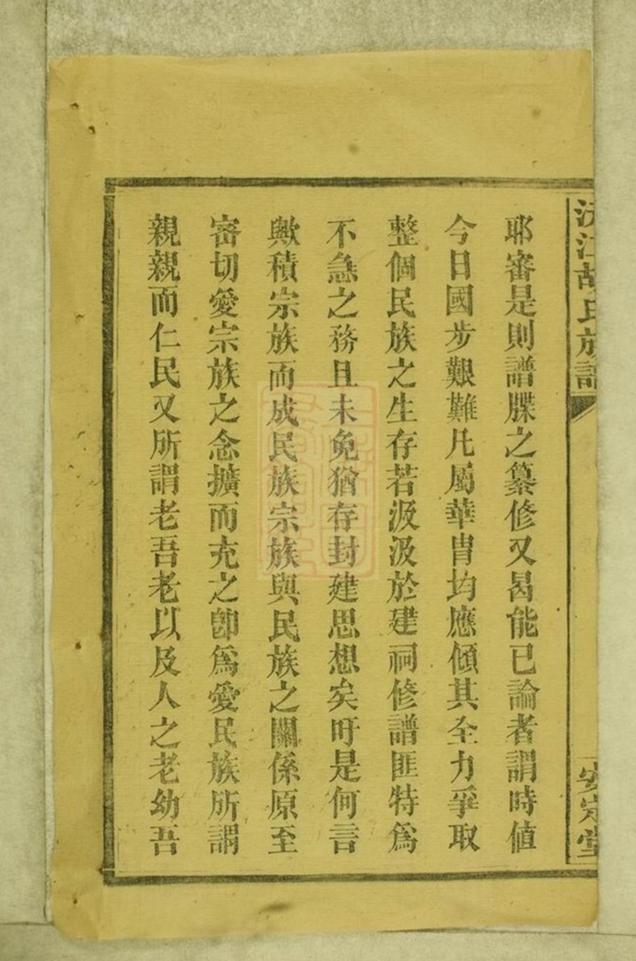 耶審是則譜牒之纂修又曷能已論者謂時值
今日國步艱難凡屬華胄均應傾其全力爭取
整個民族之生存若汲汲於建祠修譜匪特爲
不急之務且未免猶存封建思想矣吁是何言
歟積宗族而成民族宗族與民族之關係原至
密切愛宗族之念擴而充之卽爲愛民族所謂
親親而仁民又所謂老吾老以及人之老幼吾
江胡氏族譜
安定堂